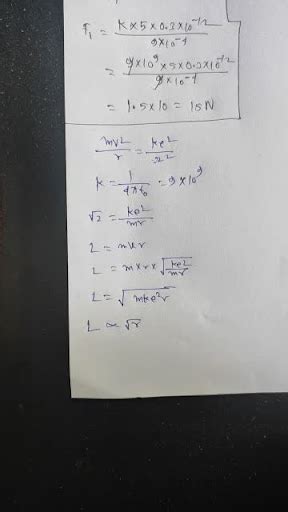 F₁ = K×5×0.3×10⁻¹² / 9×10⁻⁴
= 9×10⁹×5×0.3×10⁻¹² / 9×10⁻⁴
= 1.5×10 = 15N
mv²/r = ke²/r²
K = 1/4πε₀ = 9×10⁹
√2 = ke²/mr
L = mvr
L = m×r×√(ke²/mr)
L = √(mke²r)
L ∝ √r